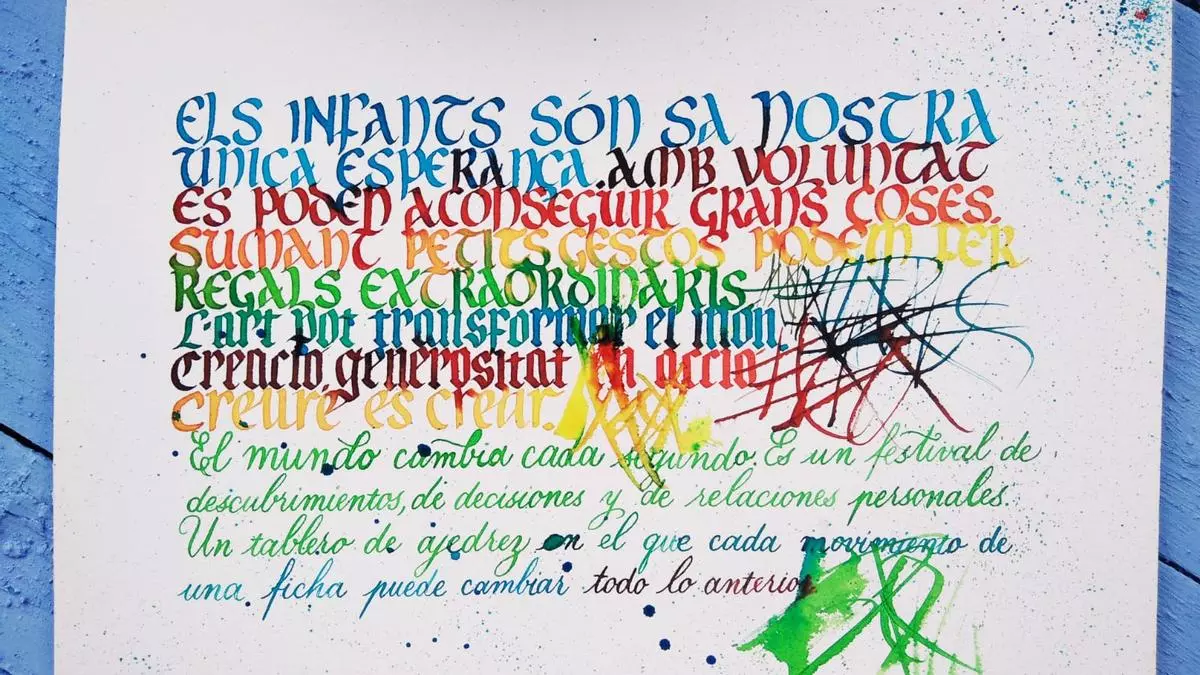 ELS INFANTS SÓN SA NOSTRA
ÚNICA ESPERANÇA. AMB VOLUNTAT
ES PODEN ACONSEGUIR GRANS COSES.
SUMANT PETITS GESTOS PODEM FER
REGALS EXTRAORDINARIS
L'art pot transformar el món.
Creació, generositat en acció
creure és crear.
El mundo cambia cada segundo. Es un festival de
descubrimientos, de decisiones y de relaciones personales.
Un tablero de ajedrez en el que cada movimiento de
una ficha puede cambiar todo lo anterior